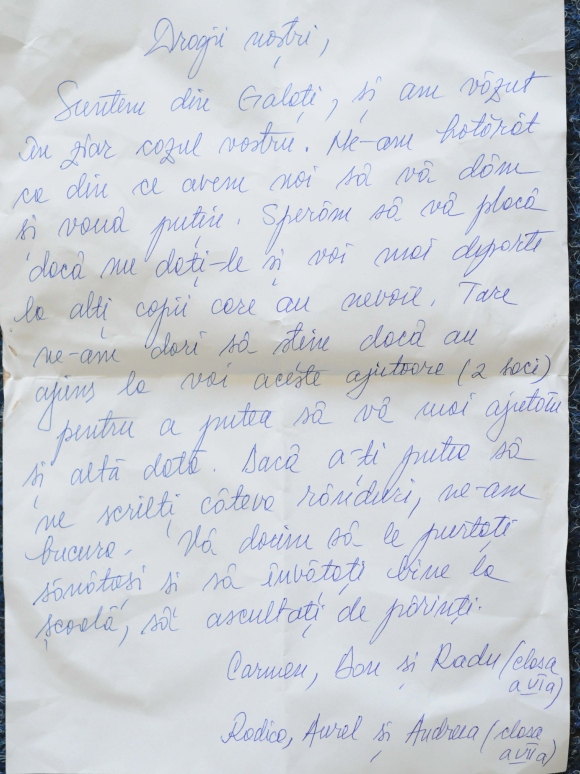 Dragii noștri,
Suntem din Galați, și am văzut
în ziar cazul vostru. Ne-am hotărât
ca din ce avem noi să vă dăm
și vouă puțin. Sperăm să vă placă
dacă nu dați-le și voi mai departe
la alți copii care au nevoie. Tare
ne-am dori să știm dacă au
ajuns la voi aceste ajutoare (2 saci)
pentru a putea să vă mai ajutăm
și altă dată. Dacă a-ți putea să
ne scrieți câteva rânduri, ne-am
bucura. Vă dorim să le purtați
sănătoși si să învățați bine la
școală, să ascultați de părinți.
Carmen, Dan și Radu (clasa
a VI a)
Rodica, Aurel și Andreea (clasa
a VII a)